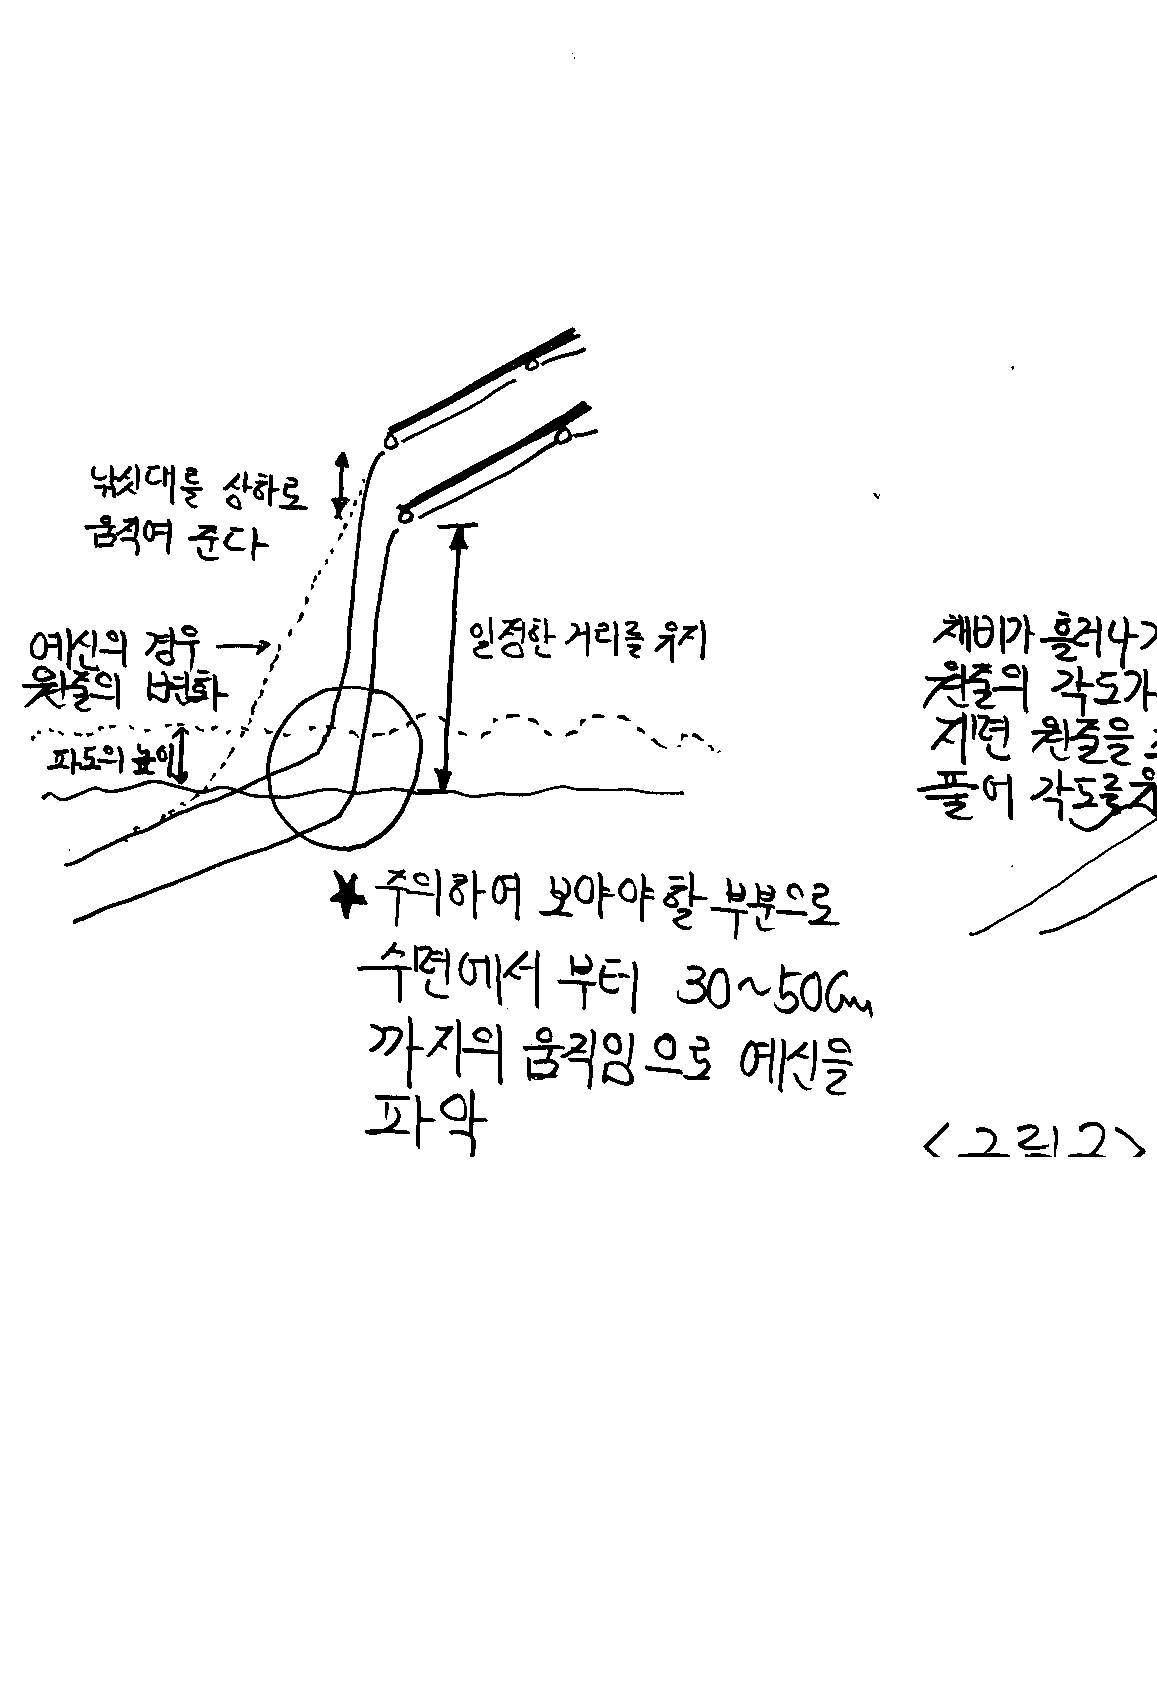 낚싯대를 상하로
움직여 준다
일정한 거리를 유지
예신의 경우
원줄의 변화
파도의 높이
★ 주의하여 보아야 할 부분으로
수면에서 부터 30~50Cm
까지의 움직임으로 예신을
파악
채비가 흘러나가
원줄의 각도가
지면 원줄을
풀어 각도를
<그림2>